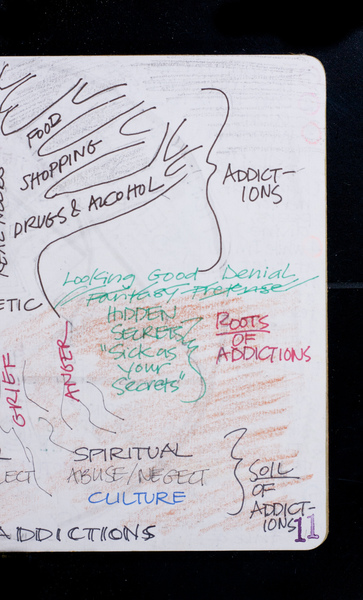 FOOD
SHOPPING
DRUGS & ALCOHOL
ADDICT-
IONS
Looking Good Denial
Fantasy Pretense
ETIC
HIDDEN
SECRETS
"Sick as
your
Secrets"
ROOTS
OF
ADDICTIONS
GRIEF
ANGER
SPIRITUAL
LECT ABUSE/NEGECT
CULTURE
SOIL
OF
ADDICT-
IONS
11
ADDICTIONS